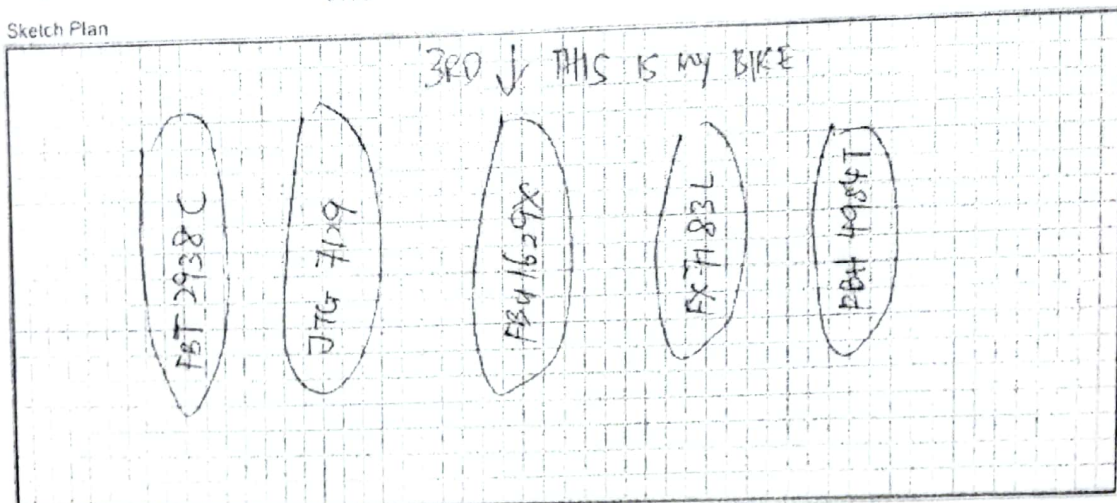 Sketch Plan
3RD ↓ THIS IS MY BIKE
FBT 2938 C
JTG 7129
FBY1629X
FX7183L
FBH 4984T